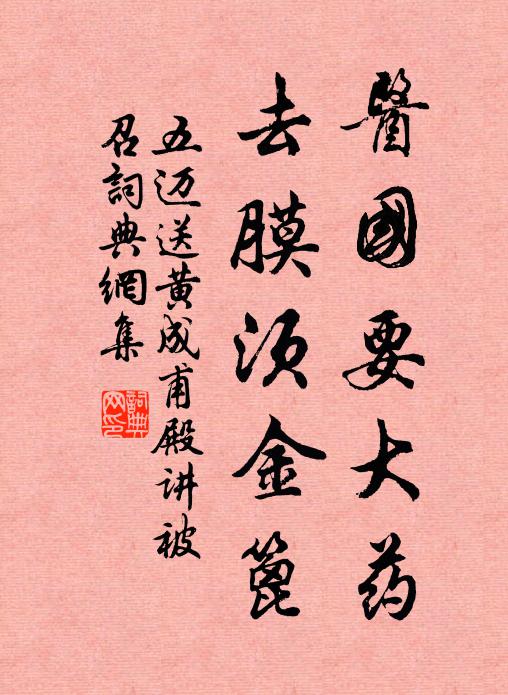 醫國要大药
去膜须金篦
五迈送黄成甫殿讲被
召詞典網集
詞典
网印